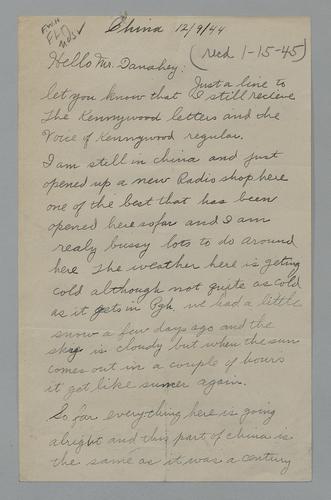 China 12/9/44
(recd 1-15-45)
Hello Mr. Danahey:
Just a line to
let you know that I still recieve
The Kennywood letters and the
Voice of Kennywood regular.
I am still in china and just
opened up a new Radio shop here
one of the best that has been
opened here sofar and I am
realy bussy lots to do around
here The weather here is geting
cold although not quite as cold
as it gets in Pgh, we had a little
snow a few days ago and the
sky is cloudy but when the sun
comes out in a couple of hours
it get like sumer again.
So far everything here is going
alright and this part of china is
the same as it was a century